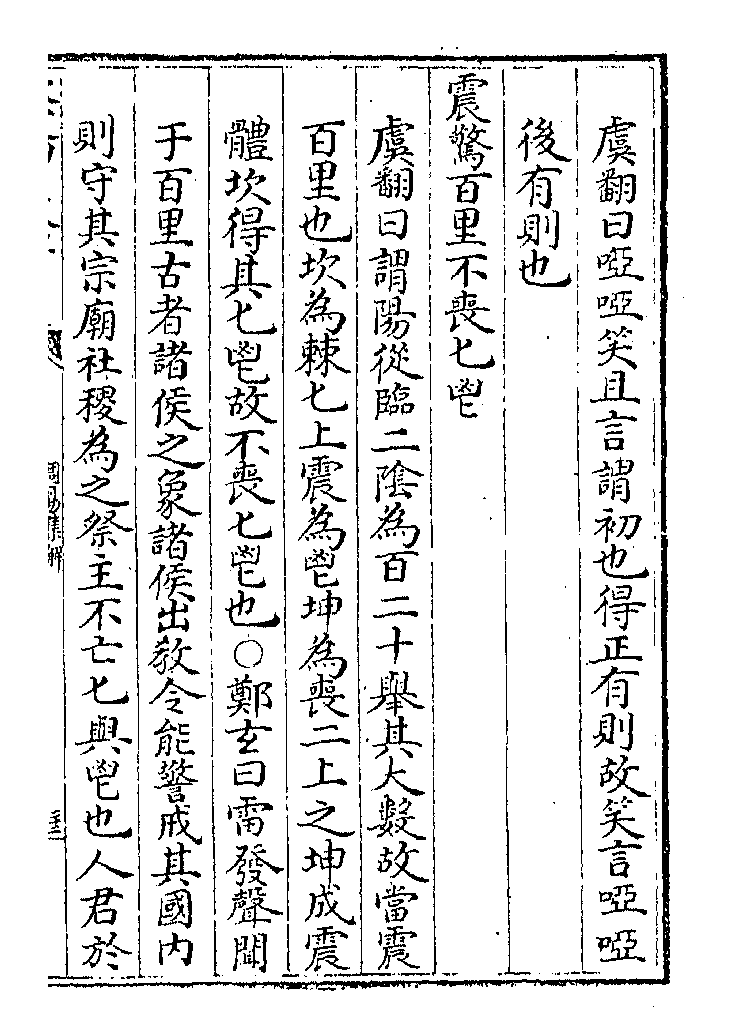 虞翻曰啞啞笑且言謂初也得正有則故笑言啞啞
後有則也
震驚百里不喪匕鬯
虞翻曰謂陽從臨二陰為百二十舉其大數故當震
百里也坎為棘匕上震為鬯坤為喪二上之坤成震
體坎得其匕鬯故不喪匕鬯也○鄭玄曰雷發聲聞
于百里古者諸侯之象諸侯出教令能警戒其國内
則守其宗廟社稷為之祭主不亡匕與鬯也人君於
周易集解